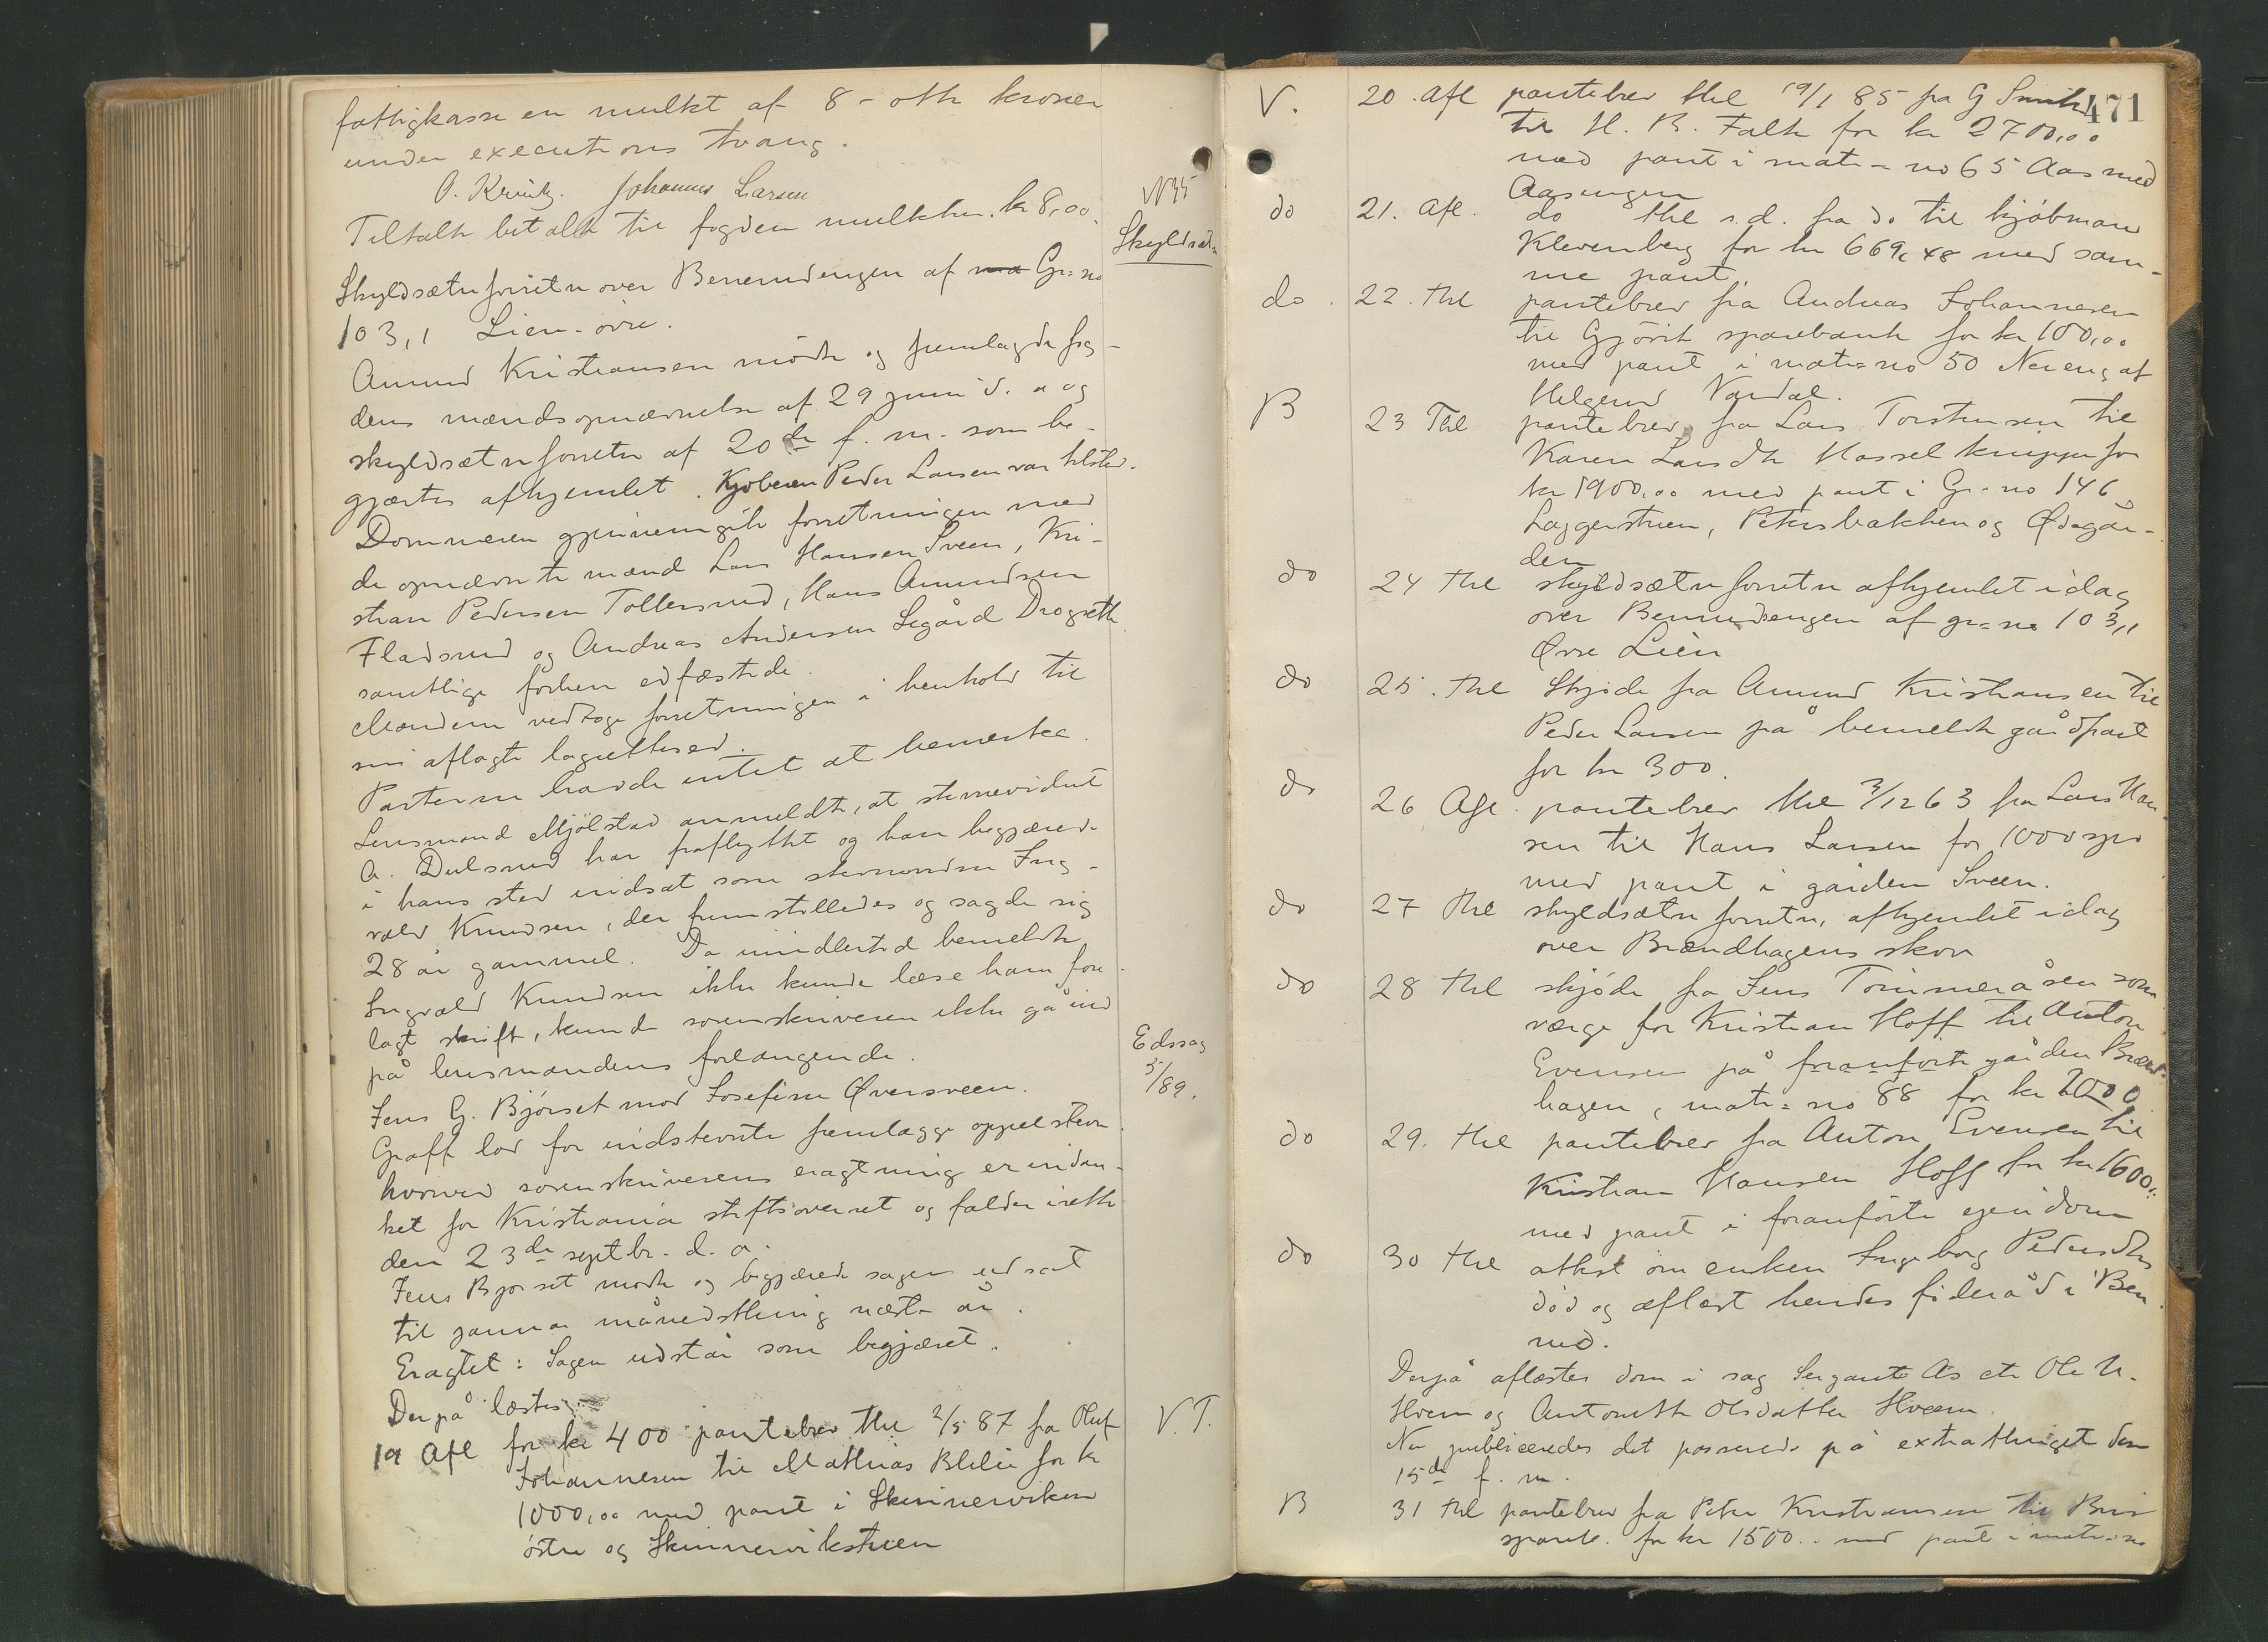 fattigkasse en mulkt af 8 - otte kroner
under executions tvang.
Johannes Larsen
Tiltalte betalte til fogden mulkten kr 8,00.
N 35
Skyldsæt
Skyldsætnforretn over Benerudengen af Gr=no
103,1 Lien øvre.
Amund Kristiansen mödte og fremlagde fog-
dens mændsopnævnelse af 29 juni d. a og
skyldsætnforretn af 20de f. m. som be-
gjærtes afhjemlet. Kjøberen Peder Larsen var tilsted.
Dommeren gjennemgik forretningen med
de opnævnte mænd Lars Hansen Sveen, Kri-
stian Pedersen Tollersrud, Hans Amundsen
Fladsrud og Andreas Andersen Segård
samtlige forhen edfæstede.
Mændene vedtoge forretningen i henhold til
sin aflagte lagrettesed.
Parterne havde intet at bemerke.
Lensmand Mjölstad anmeldte, at stevnevidnet
A. Dulsrud har fraflyttet og han begjærede
i hans sted indsat som stevnevidne Ing-
vald Knudsen, der fremstilledes og sagde sig
28 år gammel. Da imidlertid bemeldte
Ingvald Knudsen ikke kunde læse ham fore-
lagt skrift, kunde sorenskriveren ikke gå ind
på lensmandens forlangende.
Edssag
5/89.
Jens G. Bjørset mod Josefine Øversveen.
Graff lod for indstevnte fremlægge appelstevn.
hvorved sorenskriverens eragtning er indan-
ket for Kristiania stiftsoverret og falder irette
den 23de septbr. d. a.
Jens Bjørset mødte og begjærede sagen udsat
til januar månedsthing næste år.
Eragtet: Sagen udstår som begjæret.
Derpå læstes:
V. T.
19 Afl for kr 400 pantebrev thl 2/5 87 fra Oluf
Johannesen til Mathias Blilie for kr
1000,00 med pant i Skinnerviken
östre og Skinnervikstuen
471
V. 20. Afl pantebrev thl 19/1 85 fra G Smith
til H. B. Falk for kr 2700,00
med pant i matr=no 65 Aas med
Aasengen
do 21. Afl. do thl s.d. fra do til kjöbmand
Klevenberg for kr 669,48 med sam-
me pant.
do. 22. thl pantebrev fra Andreas Johannesen
til Gjövik sparebank for kr 100,00
med pant i matr=no 50 Nereng af
Helgerud Vardal.
B 23 Thl pantebrev fra Lars Torstensen til
Karen Larsdtr Hasselknippe for
kr 1900,00 med pant i Gr=no 146
Laggerstuen, Petersbakken og Ødegår-
den
do 24 thl skyldsætnforretn afhjemlet idag
over Benerudengen af gr=no 103,1
Øvre Lien
do 25. thl Skjøde fra Amund Kristiansen til
Peder Larsen på bemeldte gårdpart
for kr 300.
do 26 Afl. pantebrev thl 3/12 63 fra Lars Han-
sen til Hans Larsen for 1000 spd
med pant i gården Sveen.
do 27 thl skyldsætnforretn, afhjemlet idag
over Brændhagens skov
do 28 thl skjöde fra Jens Tömmeråsen som
værge for Kristian Hoff til Anton
Evensen på foranförte gården Brænd-
hagen, matr=no 88 for kr 2000
do 29. thl pantebrev fra Anton Evensen til
Kristian Hansen Hoff for kr 1600,
med pant i foranförte eiendom
do 30 thl attest om enken Ingeborg Pedersdtrs
död og aflæst hendes föderåd i Ben
rud.
Derpå aflæstes dom i sag Sergante Ås ctr Ole H.
Hveem og Antonette Olsdatter Hveem.
Nu publiceredes det passerede på extrathinget den
15de f. m.
B 31 thl pantebrev fra Peter Kristiansen til Biri
spareb. for kr 1500.. med pant i matr=no